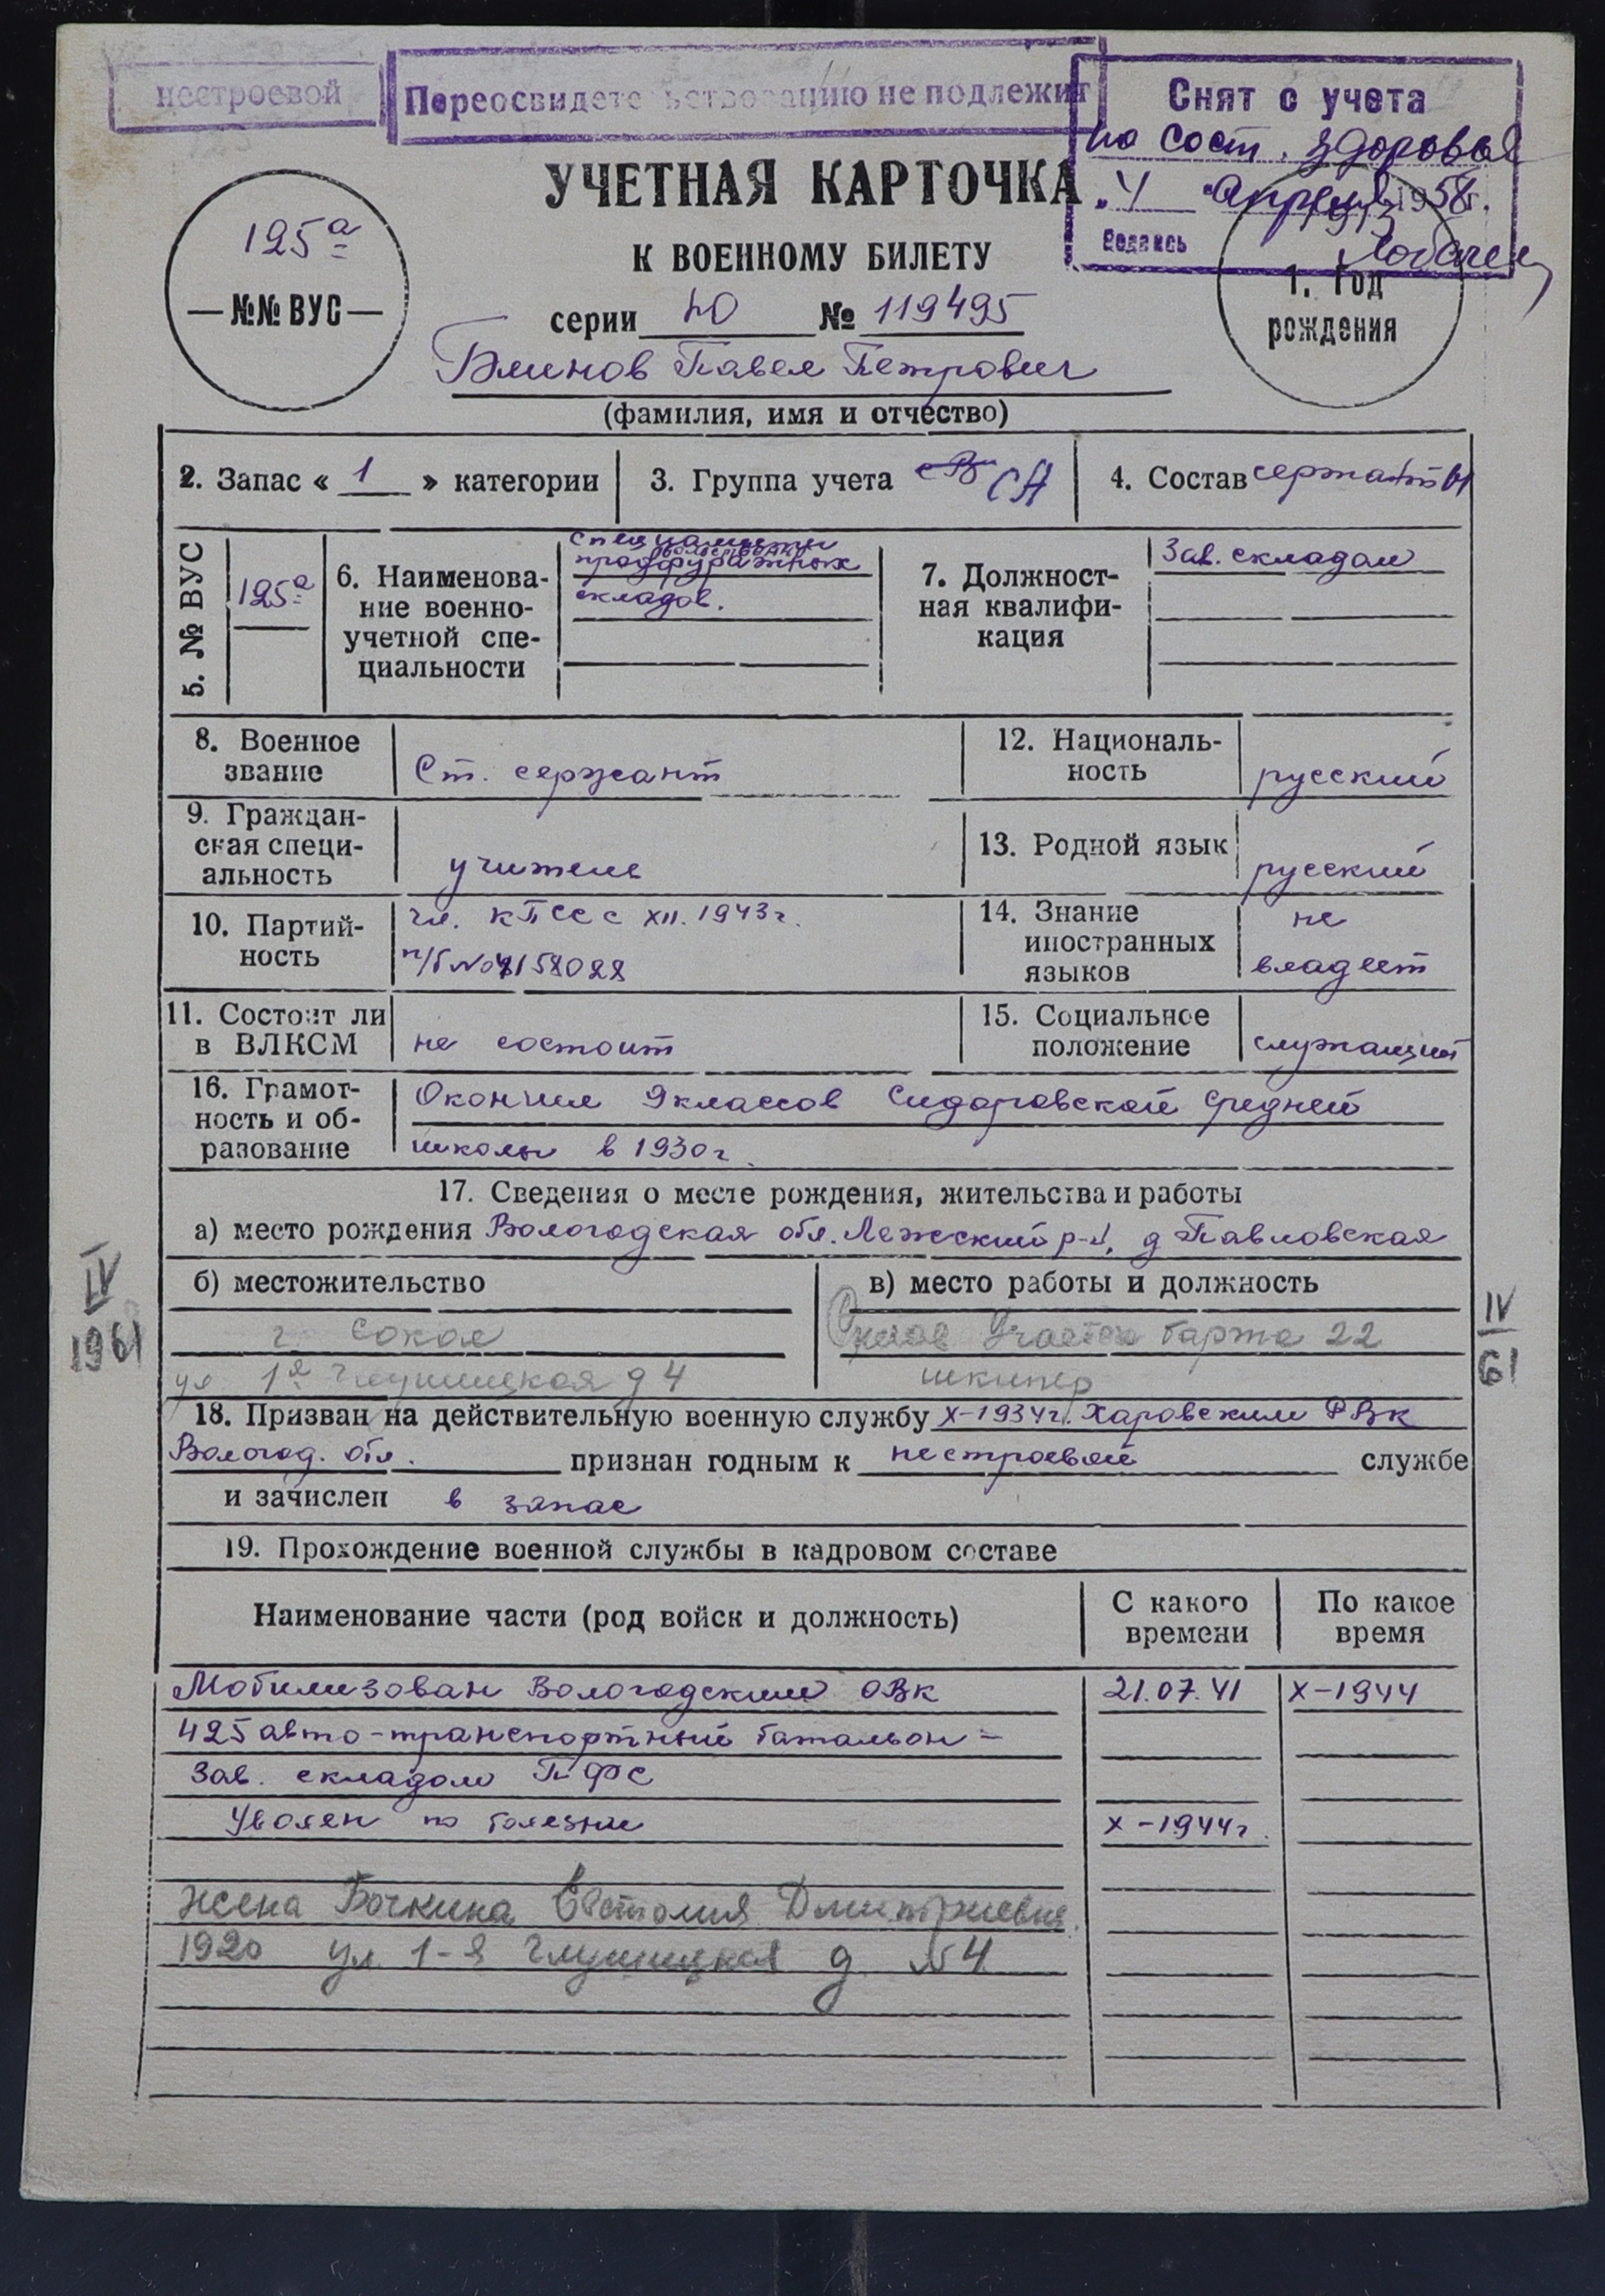 нестроевой
Переосвидетельствованию не подлежит
Снят с учета
по сост. здоровья
"4" апреля 1958г.
Подпись
УЧЕТНАЯ КАРТОЧКА
К ВОЕННОМУ БИЛЕТУ
125а
№№ ВУС
1913
1. Год
рождения
серии НО № 119495
Блинов Павел Петрович
(фамилия, имя и отчество)
2. Запас « 1 » категории
3. Группа учета СА
4. Состав сержанты
5. № ВУС
125а
6. Наименова-
ние военно-
учетной спе-
циальности
специалисты
продовольственно
фуражных
складов.
7. Должност-
ная квалифи-
кация
Зав. складом
8. Военное
звание
Ст. сержант
12. Националь-
ность
русский
9. Граждан-
ская специ-
альность
учитель
13. Родной язык
русский
10. Партий-
ность
чл. КПСС с XII. 1943г.
п/б №4158088
14. Знание
иностранных
языков
не
владеет
11. Состоит ли
в ВЛКСМ
не состоит
15. Социальное
положение
служащий
16. Грамот-
ность и об-
разование
Окончил 9 классов Сидоровской средней
школы в 1930г.
17. Сведения о месте рождения, жительства и работы
а) место рождения Вологодская обл. Лежский р-н, д Павловская
б) местожительство
г. Сокол
ул 1я Глушицкая д 4
в) место работы и должность
Участок баржа 22
шкипер
IV
1961
IV
61
18. Призван на действительную военную службу X-1934г. Харовским РВК
Вологод. обл. признан годным к нестроевой службе
и зачислен в запас
19. Прохождение военной службы в кадровом составе
Наименование части (род войск и должность)
С какого
времени
По какое
время
Мобилизован Вологодским ОВК 21.07.41 X-1944
425 авто-транспортный батальон -
Зав. складом ПФС
Уволен по болезни X-1944г.
жена Бочкина Евстолия Дмитриевна.
1920 ул. 1-я Глушицкая д №4